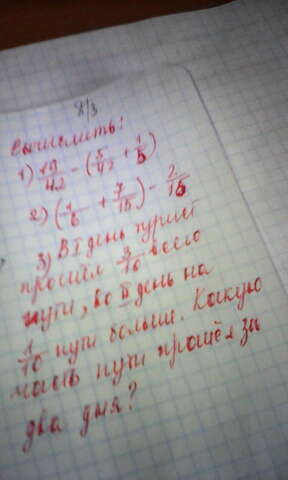 д/з
Вычислить!
1) 19/42 - (5/42 + 1/6)
2) (1/6 + 7/15) - 2/15
3) В I день турист
прошёл 3/10 всего
пути, во II день на
1/10 пути больше. Какую
часть пути прошёл за
два дня?